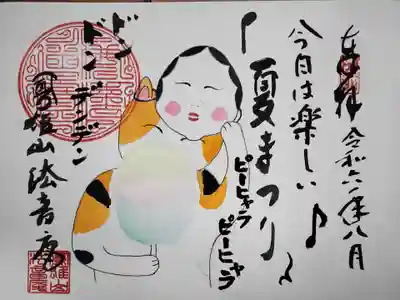 奉拝 令和六年八月
今日は楽しい♪
夏まつり
ピーヒャラ
ピーヒャラ
ドン
ドン
デンデン
山法音庵